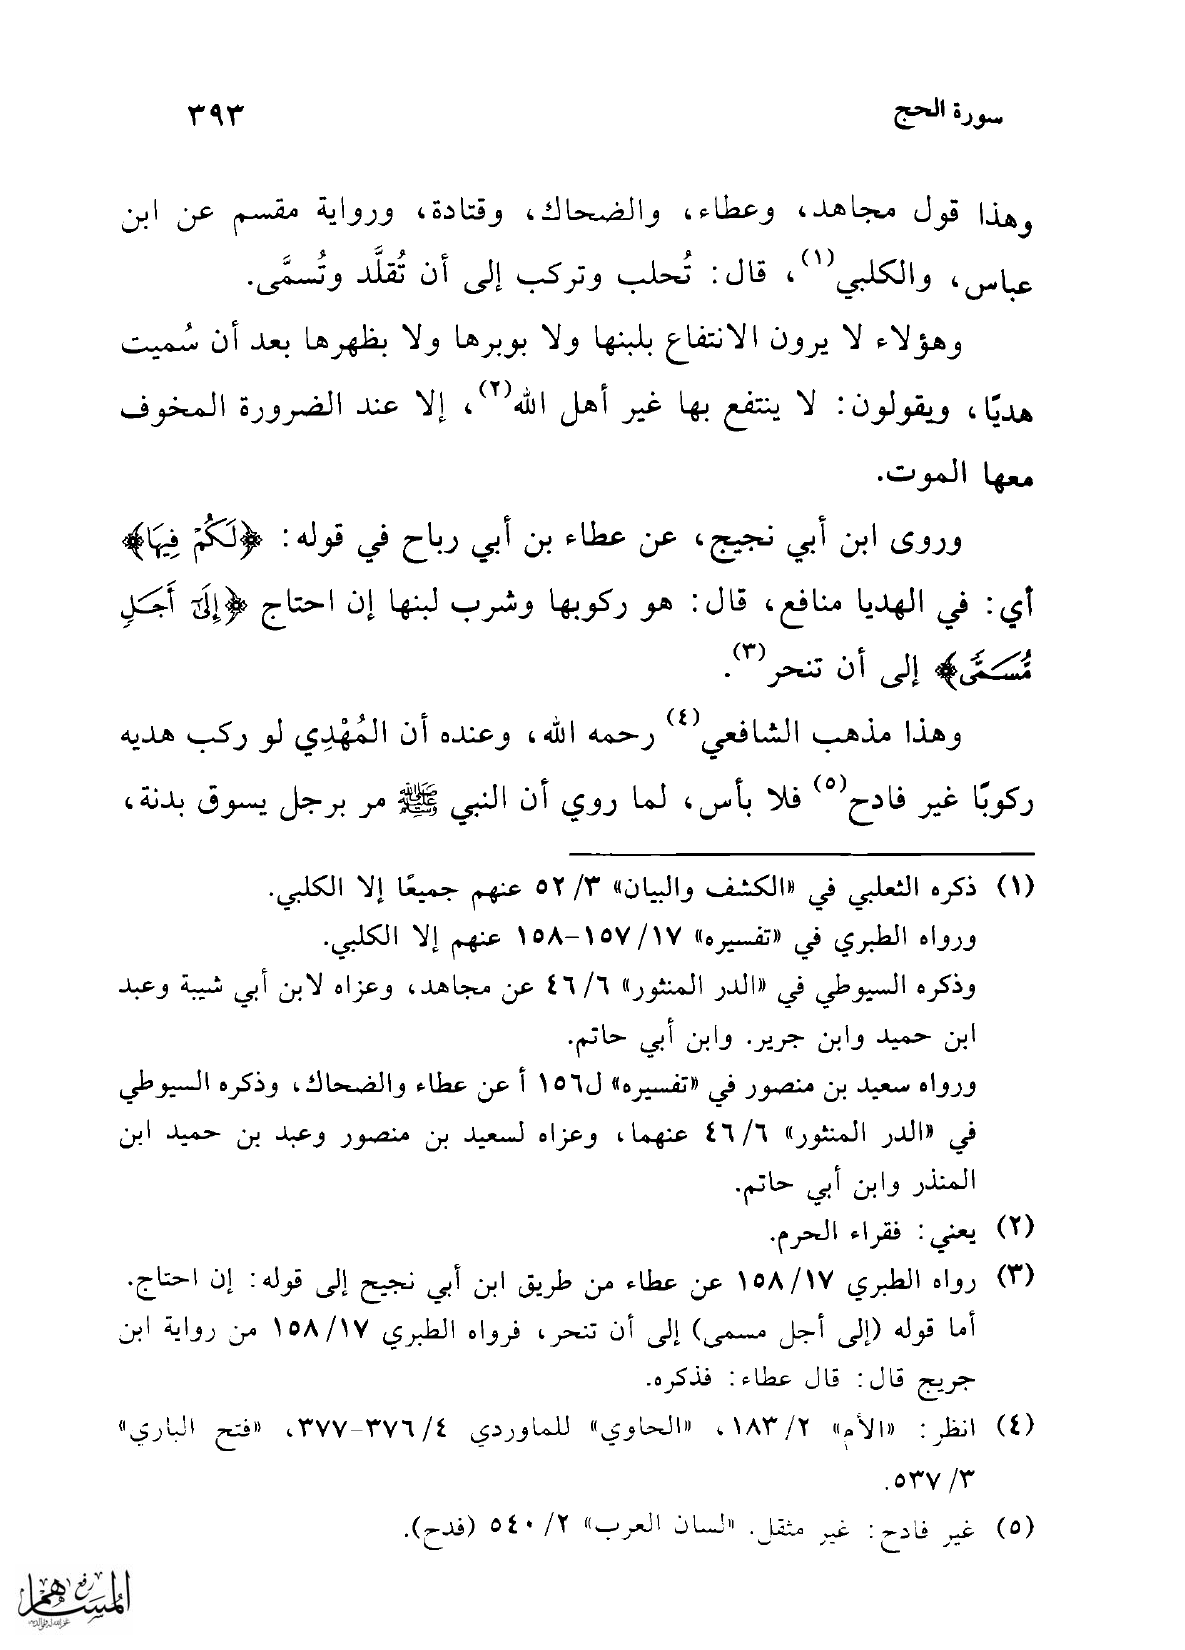 سورة الحج
٣٩٣
وهذا قول مجاهد، وعطاء، والضحاك، وقتادة، ورواية مقسم عن ابن
عباس، والكلبي(١)، قال: تُحلب وتركب إلى أن تُقلَّد وتُسمَّى.
وهؤلاء لا يرون الانتفاع بلبنها ولا بوبرها ولا بظهرها بعد أن سُميت
هديًا، ويقولون: لا ينتفع بها غير أهل الله(٢)، إلا عند الضرورة المخوف
معها الموت.
وروى ابن أبي نجيج، عن عطاء بن أبي رباح في قوله: ﴿لَكُمْ فِيهَا﴾
أي: في الهديا منافع، قال: هو ركوبها وشرب لبنها إن احتاج ﴿إِلَىٰٓ أَجَلٍ
مُّسَمًّى﴾ إلى أن تنحر(٣).
وهذا مذهب الشافعي(٤) رحمه الله، وعنده أن المُهْدِي لو ركب هديه
ركوبًا غير فادح(٥) فلا بأس، لما روي أن النبي ﷺ مر برجل يسوق بدنة،
(١) ذكره الثعلبي في «الكشف والبيان» ٣/ ٥٢ عنهم جميعًا إلا الكلبي.
ورواه الطبري في «تفسيره» ١٧/ ١٥٧-١٥٨ عنهم إلا الكلبي.
وذكره السيوطي في «الدر المنثور» ٦/ ٤٦ عن مجاهد، وعزاه لابن أبي شيبة وعبد
ابن حميد وابن جرير. وابن أبي حاتم.
ورواه سعيد بن منصور في «تفسيره» ل١٥٦ أ عن عطاء والضحاك، وذكره السيوطي
في «الدر المنثور» ٦/ ٤٦ عنهما، وعزاه لسعيد بن منصور وعبد بن حميد ابن
المنذر وابن أبي حاتم.
(٢) يعني: فقراء الحرم.
(٣) رواه الطبري ١٧/ ١٥٨ عن عطاء من طريق ابن أبي نجيح إلى قوله: إن احتاج.
أما قوله (إلى أجل مسمى) إلى أن تنحر، فرواه الطبري ١٧/ ١٥٨ من رواية ابن
جريج قال: قال عطاء: فذكره.
(٤) انظر: «الأم» ٢/ ١٨٣، «الحاوي» للماوردي ٤/ ٣٧٦-٣٧٧، «فتح الباري»
٣/ ٥٣٧.
(٥) غير فادح: غير مثقل. «لسان العرب» ٢/ ٥٤٠ (فدح).
رفع
المساهم